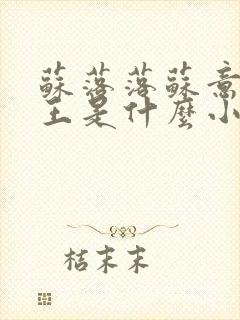 蘇落落蘇意
王是什麼小
桔末末